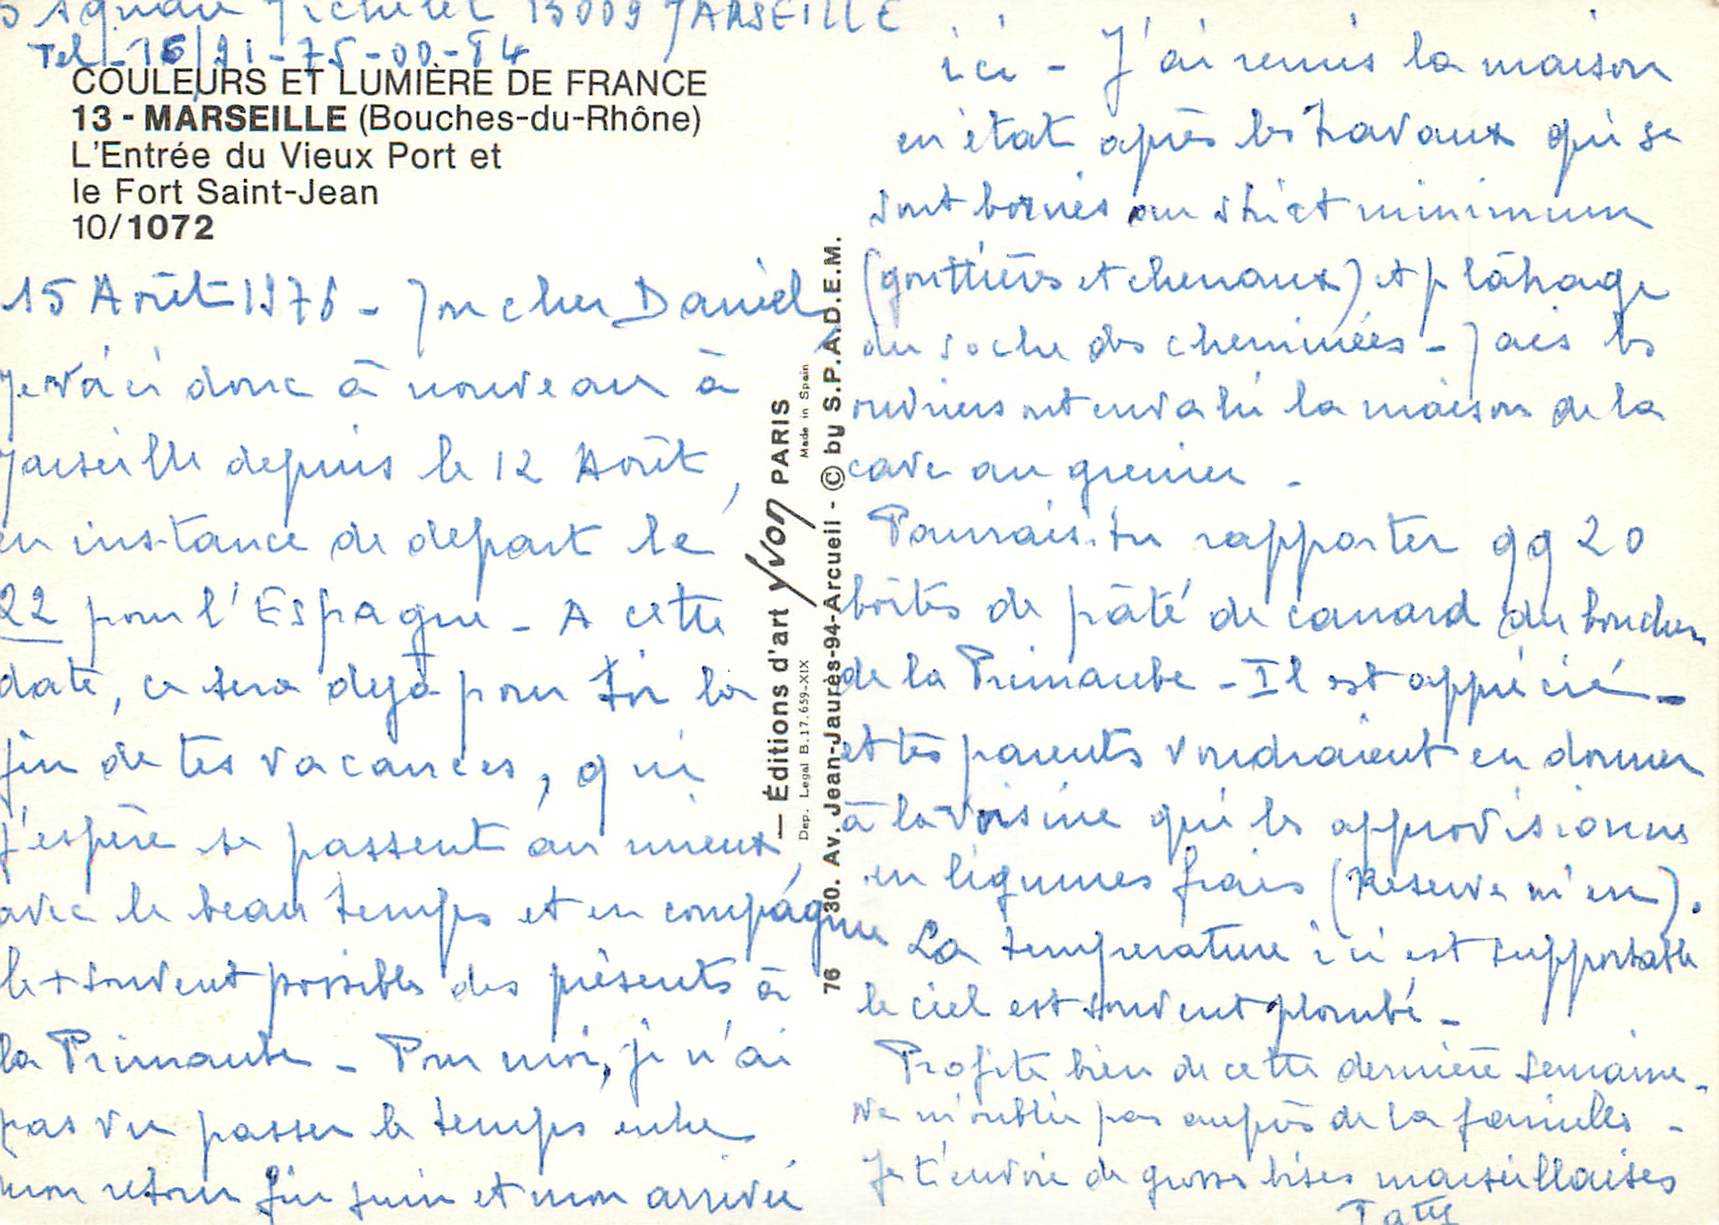 Square Michelet 13009 MARSEILLE
Tel - 16/91-75-00-54
COULEURS ET LUMIÈRE DE FRANCE
13 - MARSEILLE (Bouches-du-Rhône)
L'Entrée du Vieux Port et
le Fort Saint-Jean
10/1072
15 Août 1976 - Mon cher Daniel,
Me voici donc à nouveau à
Marseille depuis le 12 Août,
en instance de départ le
22 pour l'Espagne - A cette
date, ce sera déjà pour toi la
fin de tes vacances, qui
j'espère se passent au mieux,
avec le beau temps et en compagnie
le + souvent possible des présents à
la Primaube - Pour moi, je n'ai
pas vu passer le temps entre
mon retour fin juin et mon arrivée
— Éditions d'art Yvon PARIS
Made in Spain
Dep. Legal B.17.659-XIX
76 30. Av. Jean-Jaurès-94-Arcueil - © by S.P.A.D.E.M.
ici - J'ai remis la maison
en état après les travaux qui se
sont bornés au strict minimum
(gouttières et chenaux) et plâtrage
du socle des cheminées - Mais les
ouvriers ont envahi la maison de la
cave au grenier -
Pourrais-tu rapporter qq 20
boîtes de pâté de canard du boucher
de la Primaube - Il est apprécié -
et tes parents voudraient en donner
à la voisine qui les approvisionne
en légumes frais (Réserve m'en).
La température ici est supportable
le ciel est souvent plombé -
Profite bien de cette dernière semaine -
Ne m'oublie pas auprès de la famille -
Je t'envoie de grosses bises marseillaises
Taty